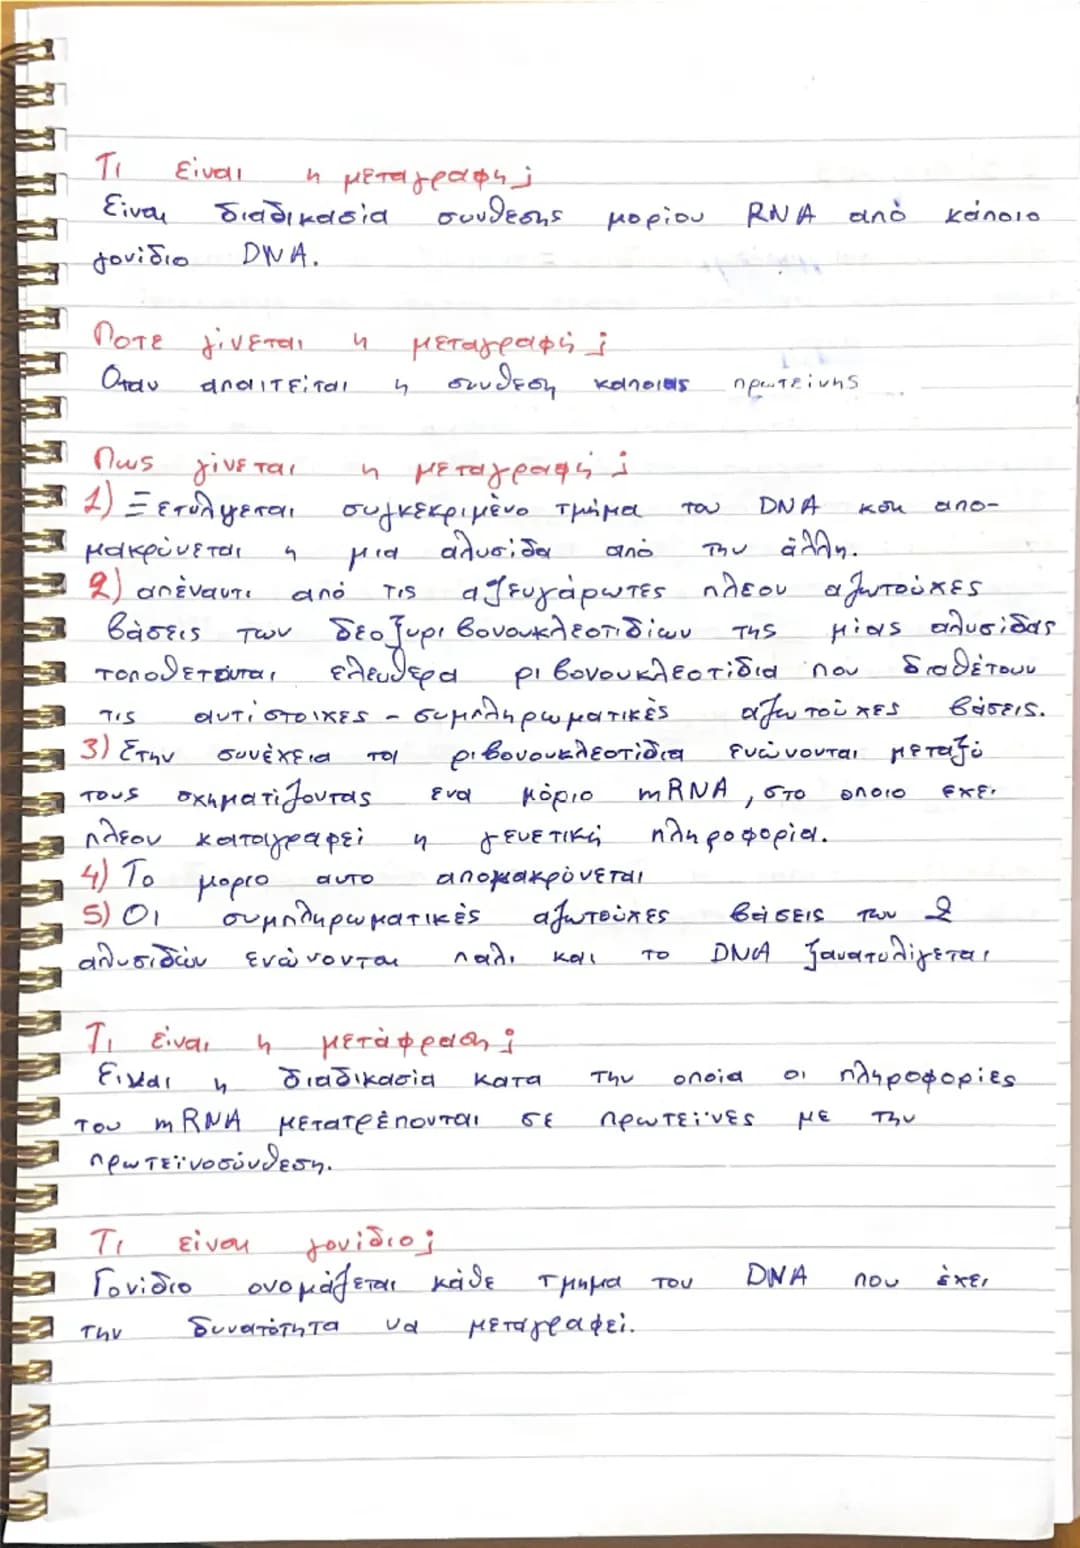 Τι είναι η μεταγραφή;
Είναι διαδικασία συνθεσης μορίου RNA από κάποιο
γονίδιο DNA.
Ποτε γίνεται η μεταγραφή;
Οταν απαιτείται η συνθεση καποιας πρωτεινης
Πως γίνεται η μεταγραφή;
1) Ξετυλιγεται συγκεκριμένο τμήμα του DNA και απο-
μακρύνεται η μια αλυσίδα από την άλλη.
2) απέναντι από τις αζευγάρωτες πλεον αζωτούχες
βάσεις των δεοξυριβονουκλεοτιδίων της μίας αλυσίδας
τοποθετούνται ελευθερα ριβονουκλεοτίδια που διαθέτουν
τις αντίστοιχες - συμπληρωματικές αζωτούχες βάσεις.
3) Στην συνέχεια τα ριβονουκλεοτίδια ενώνονται μεταξύ
τους σχηματίζοντας ενα μόριο mRNA, στο οποιο εχει
πλεον καταγραφεί η γενετική πληροφορία.
4) Το μοριο αυτο απομακρύνεται
5) Οι συμπληρωματικές αζωτούχες βάσεις των 2
αλυσιδών ενώνονται παλι και το DNA ξανατυλίγεται
Τι είναι η μετάφραση;
Ειναι η διαδικασία κατα την οποία οι πληροφορίες
του mRNA μετατρέπονται σε πρωτεϊνες με την
πρωτεϊνοσύνθεση.
Τι είναι γονίδιο;
Γονίδιο ονομάζεται κάθε τμημα του DNA που έχει
την δυνατότητα να μεταγραφεί.